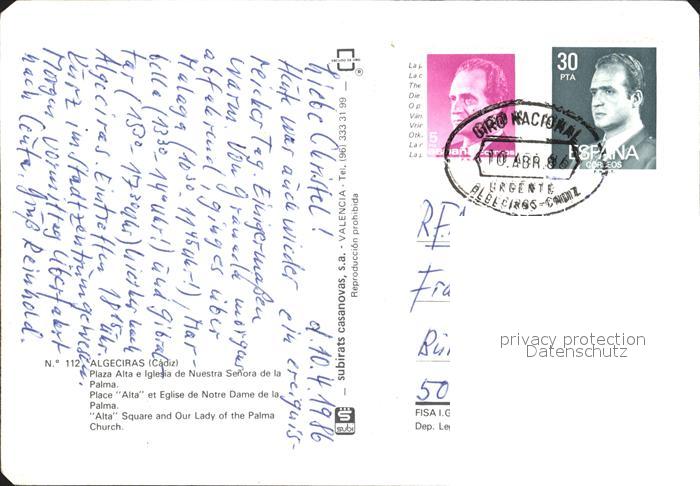 d. 10.4.1986
Liebe Christel!
Heute war auch wieder ein ereignis-
reicher Tag. Einigermaßen
warm. Von Granada morgens
abfahrend, ging es über
Malaga (1030 - 1145 Uhr), Mar-
bella (1330 - 14 Uhr) und Gibral-
tar (1530 - Uhr) hierher nach
Algeciras. Eintreffen 1815 Uhr.
Kurz im Stadtzentrum gewesen.
Morgen Vormittag Überfahrt
nach Ceuta. Gruß Reinhold.
N.° 112 ALGECIRAS (Cádiz)
Plaza Alta e Iglesia de Nuestra Señora de la
Palma.
Place "Alta" et Eglise de Notre Dame de la
Palma.
"Alta" Square and Our Lady of the Palma
Church.
subirats casanovas, s.a. - VALENCIA - Tel. (96) 333 31 99
Reproducción prohibida
subi
30
PTA
ESPAÑA
CORREOS
GIRO NACIONAL
10 ABR. 86
URGENTE
ALGECIRAS - CADIZ
La c
The
Die
O p
Van
Vrie
Otk
Lar
La l
Fra
50
FISA I.G
Dep. Leg
privacy protection
Datenschutz